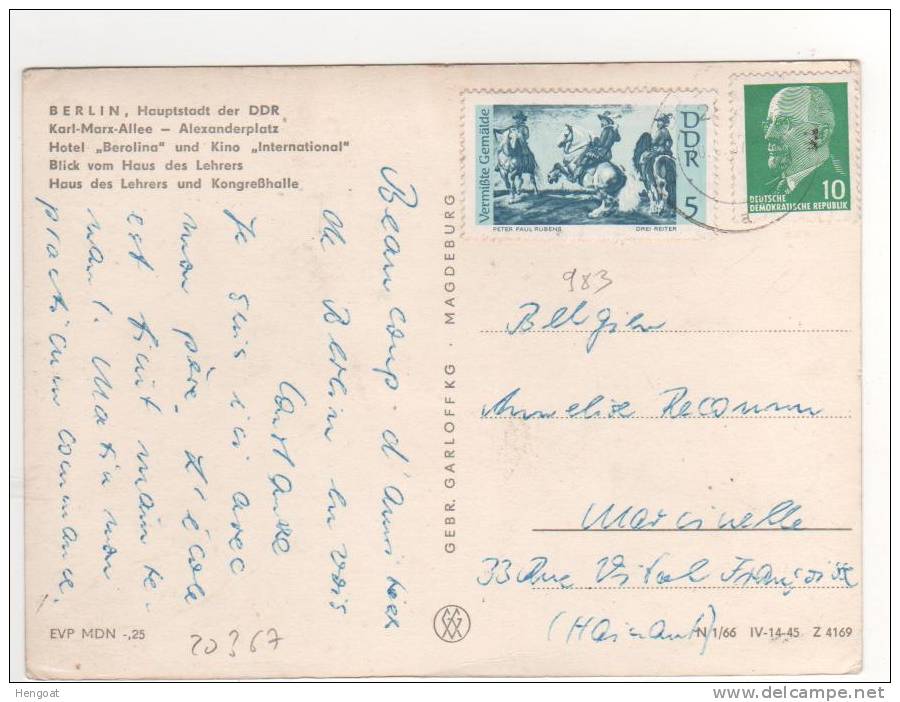 BERLIN, Hauptstadt der DDR
Karl-Marx-Allee – Alexanderplatz
Hotel „Berolina" und Kino „International"
Blick vom Haus des Lehrers
Haus des Lehrers und Kongreßhalle
Beaucoup d'amitiés
de Berlin
Je suis ici avec
mon père. L'école
est finit mainte-
nant. Matin mon
practicum commence.
EVP MDN -,25
20367
GEBR. GARLOFF KG · MAGDEBURG
Vermißte Gemälde
DDR
5
PETER PAUL RUBENS
DREI REITER
10
DEUTSCHE
DEMOKRATISCHE REPUBLIK
983
Belgien
Annelise
Marcinelle
33 Rue Vital Françoisse
(Hainaut)
N 1/66 IV-14-45 Z 4169
Hengoat
www.delcampe.net